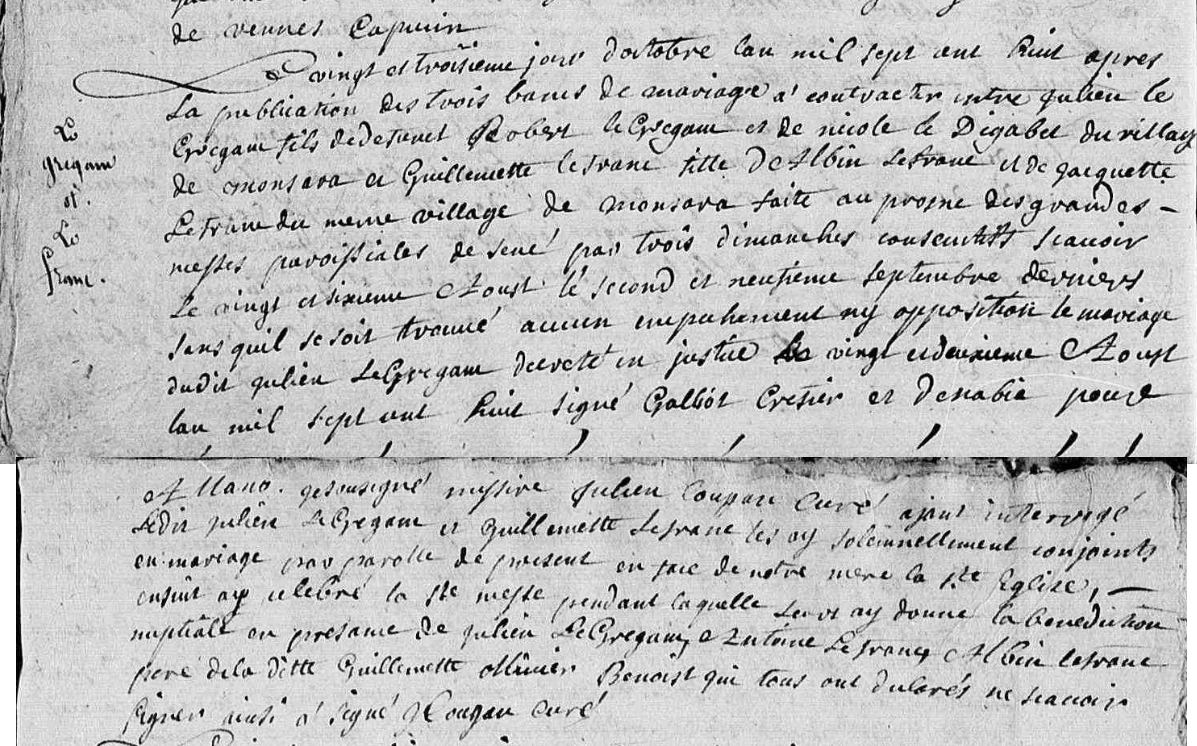 de vennes Capucin
Le vingt et troisième jour doctobre lan mil sept cent huit apres
La publication des trois bancs de mariage a contracter entre Julien le
Gregam fils de defunct Robert le Gregam et de nicole le Digabel du village
de monsara et Guillemette lefranc fille D'Albin Lefranc et de Jacquette
Lefranc du meme village de monsara faite au prosne des grandes -
messes paroissiales de sené par trois dimanches consecutifs scauoir
Le vingt et sixieme Aoust le second et neufieme septembre derniers
sans quil se soit trouué aucun empechement ny opposition le mariage
dudit Julien LeGregam decreté en justice le vingt et deuxieme Aoust
lan mil sept cent huit signé Galliot Cresier et pour
Le
gregam
et
Le
franc.
Allano. Je soussigné missire Julien Coupan curé ajant interrogé
Ledit Julien LeGregam et Guillemette Lefranc les ay solemnellement conjoints
en mariage par parolle de present en face de notre mere la Ste Eglise, -
ensuit ay celebré la Ste messe pendant laquelle leur ay donné la benediction
nuptiale en presance de Julien LeGregam, Antoine Lefranc, Albin lefranc
pere de la ditte Guillemette ollivier Benoist qui tous ont declarés ne scauoir
signer ainsi a signé J Coupan curé